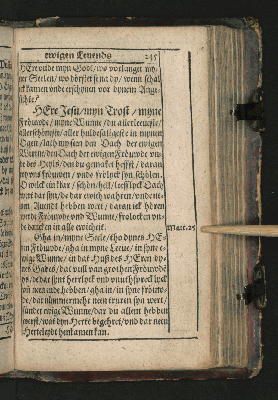 ewigen Levends 245
HEre vnde myn Godt/ wo vorlanget my-
ner Seelen/ wo dörstet se na dy/ wenn schal
ick kamen vnde erschynen vor dynem Ange-
sichte?
HEre Jesu/ myn Trost/ myne
Fröuwde/ myne Wunne/ du
allerschönster/ aller
Ogen/ lach my seen den Dach der ewigen
Wunne/ den Dach der ewigen Fröuwde vn-
de des Heyls/ den du gemaket hefft/ daran
wy vns fröuwen/ vnde frölick syn schölen.
O wick ein klar/ schön/ hell/ leefflyck Dach
wert dar syn/ de dar ewich wahren/ vnde ne-
nen Auendt hebben wert/ daran ick hören
werde Fröuwde vnd Wunne/ frolocken vn-
de dancken in alle ewicheit.
Matt. 25
Gha in/ myne Seele/ tho dynes HE-
ren Fröuwde/ gha in myne Leeue/ in syne e-
wige Wunne/ in dat Huß des HEren dy-
nes Gades/ dat vull van groten Fröuwde
ys/ de dar synt herrlyck vnd vnuthsprecklyck
vnd nen ende hebben/ gha in/ in syne fröuw-
de/ dar nümmermehr nein truren syn wert/
sünder ewige Wunne/ dar du allent hebben
werst/ wat dyn Herte begehret/ vnd dar nein
Herteleydt henkamen kan.